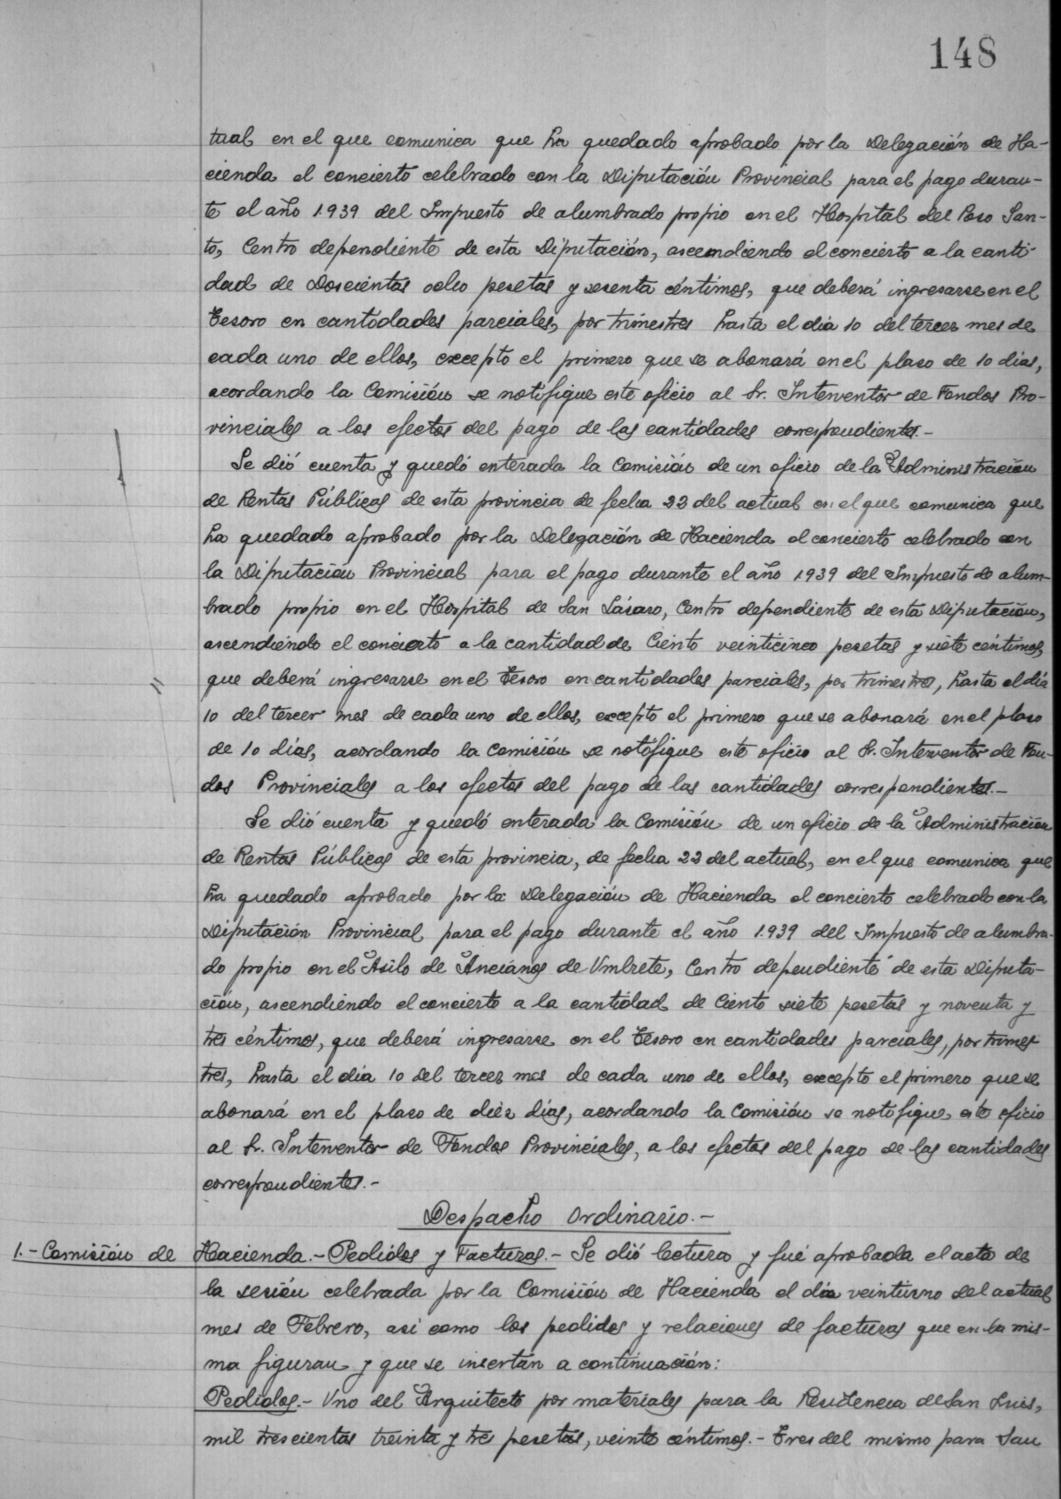 148
tual en el que comunica que ha quedado aprobado por la Delegación de Ha-
cienda el concierto celebrado con la Diputación Provincial para el pago duran-
te el año 1.939 del Impuesto de alumbrado propio en el Hospital del Pozo San-
to, Centro dependiente de esta Diputación, ascendiendo el concierto a la canti-
dad de Doscientas ocho pesetas y sesenta céntimos, que deberá ingresarse en el
Tesoro en cantidades parciales, por trimestres hasta el día 10 del tercer mes de
cada uno de ellos, excepto el primero que se abonará en el plazo de 10 días,
acordando la Comisión se notifique este oficio al Sr. Interventor de Fondos Pro-
vinciales a los efectos del pago de las cantidades correspondientes.-
Se dió cuenta y quedó enterada la Comisión de un oficio de la Administración
de Rentas Públicas de esta provincia de fecha 22 del actual en el que comunica que
ha quedado aprobado por la Delegación de Hacienda el concierto celebrado con
la Diputación Provincial para el pago durante el año 1939 del Impuesto de alum-
brado propio en el Hospital de San Lázaro, Centro dependiente de esta Diputación,
ascendiendo el concierto a la cantidad de Ciento veinticinco pesetas y siete céntimos,
que deberá ingresarse en el Tesoro en cantidades parciales, por trimestres, hasta el día
10 del tercer mes de cada uno de ellos, excepto el primero que se abonará en el plazo
de 10 días, acordando la Comisión se notifique este oficio al Sr. Interventor de Fon-
dos Provinciales a los efectos del pago de las cantidades correspondientes.-
Se dió cuenta y quedó enterada la Comisión de un oficio de la Administración
de Rentas Públicas de esta provincia, de fecha 22 del actual, en el que comunica que
ha quedado aprobado por la Delegación de Hacienda el concierto celebrado con la
Diputación Provincial para el pago durante el año 1.939 del Impuesto de alumbra-
do propio en el Asilo de Ancianos de Umbrete, Centro dependiente de esta Diputa-
ción, ascendiendo el concierto a la cantidad de Ciento siete pesetas y noventa y
tres céntimos, que deberá ingresarse en el Tesoro en cantidades parciales, por trimes
tres, hasta el día 10 del tercer mes de cada uno de ellos, excepto el primero que se
abonará en el plazo de diez días, acordando la Comisión se notifique este oficio
al Sr. Interventor de Fondos Provinciales, a los efectos del pago de las cantidades
correspondientes.-
Despacho Ordinario.-
1.- Comisión de Hacienda.- Pedidos y Facturas.- Se dió lectura y fué aprobada el acta de
la sesión celebrada por la Comisión de Hacienda el día veintiuno del actual
mes de Febrero, así como los pedidos y relaciones de facturas que en la mis-
ma figuran y que se insertan a continuación:
Pedidos.- Uno del Arquitecto por materiales para la Residencia de San Luis,
mil trescientas treinta y tres pesetas, veinte céntimos.- Tres del mismo para San